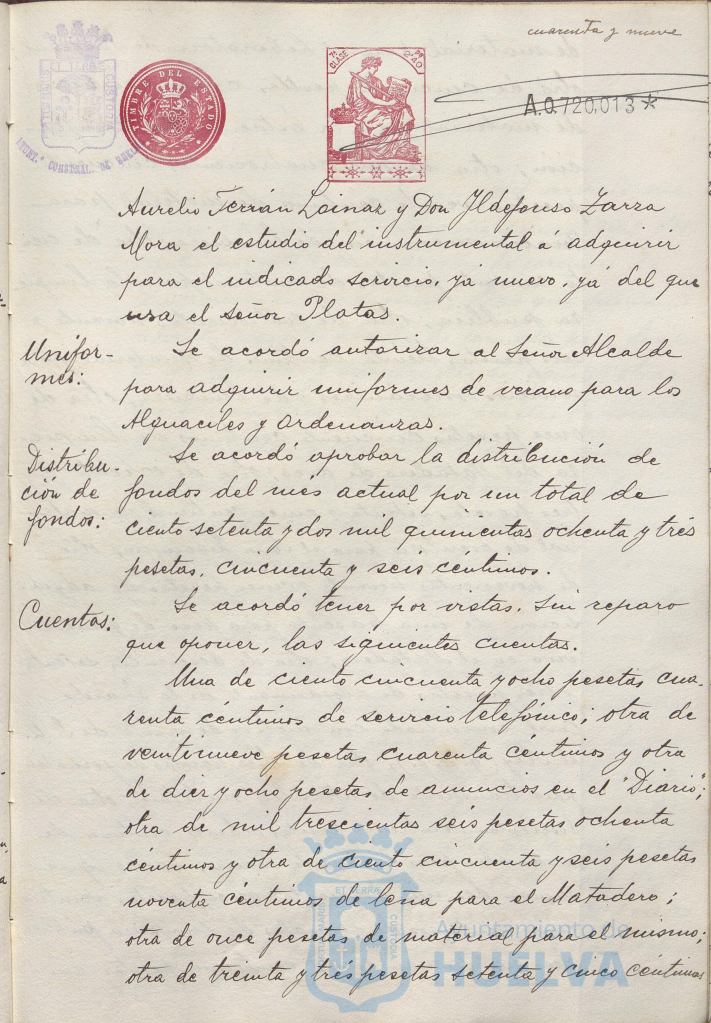 cuarenta y nueve
TIMBRE DEL ESTADO
7ª CLASE
PS 2'40
A.0.720,013*
AYUNT. CONSTNAL. DE HUELVA
Aurelio Terrán Lainaz y Don Ildefonso Zarza
Mora el estudio del instrumental á adquirir
para el indicado servicio, yá nuevo, yá del que
usa el señor Platas.
Uniformes:
Se acordó autorizar al Señor Alcalde
para adquirir uniformes de verano para los
Alguaciles y Ordenanzas.
Distribu-
ción de
fondos:
Se acordó aprobar la distribución de
fondos del més actual por un total de
ciento setenta y dos mil quinientas ochenta y trés
pesetas, cincuenta y seis céntimos.
Cuentas:
Se acordó tener por vistas, sin reparo
que oponer, las siguientes cuentas.
Una de ciento cincuenta y ocho pesetas cua-
renta céntimos de servicio telefónico; otra de
veintinueve pesetas cuarenta céntimos y otra
de diez y ocho pesetas de anuncios en el "Diario";
otra de mil trescientas seis pesetas ochenta
céntimos y otra de ciento cincuenta y seis pesetas
noventa céntimos de leña para el Matadero;
otra de once pesetas de material para el mismo;
otra de treinta y trés pesetas setenta y cinco céntimos
Ayuntamiento de
HUELVA